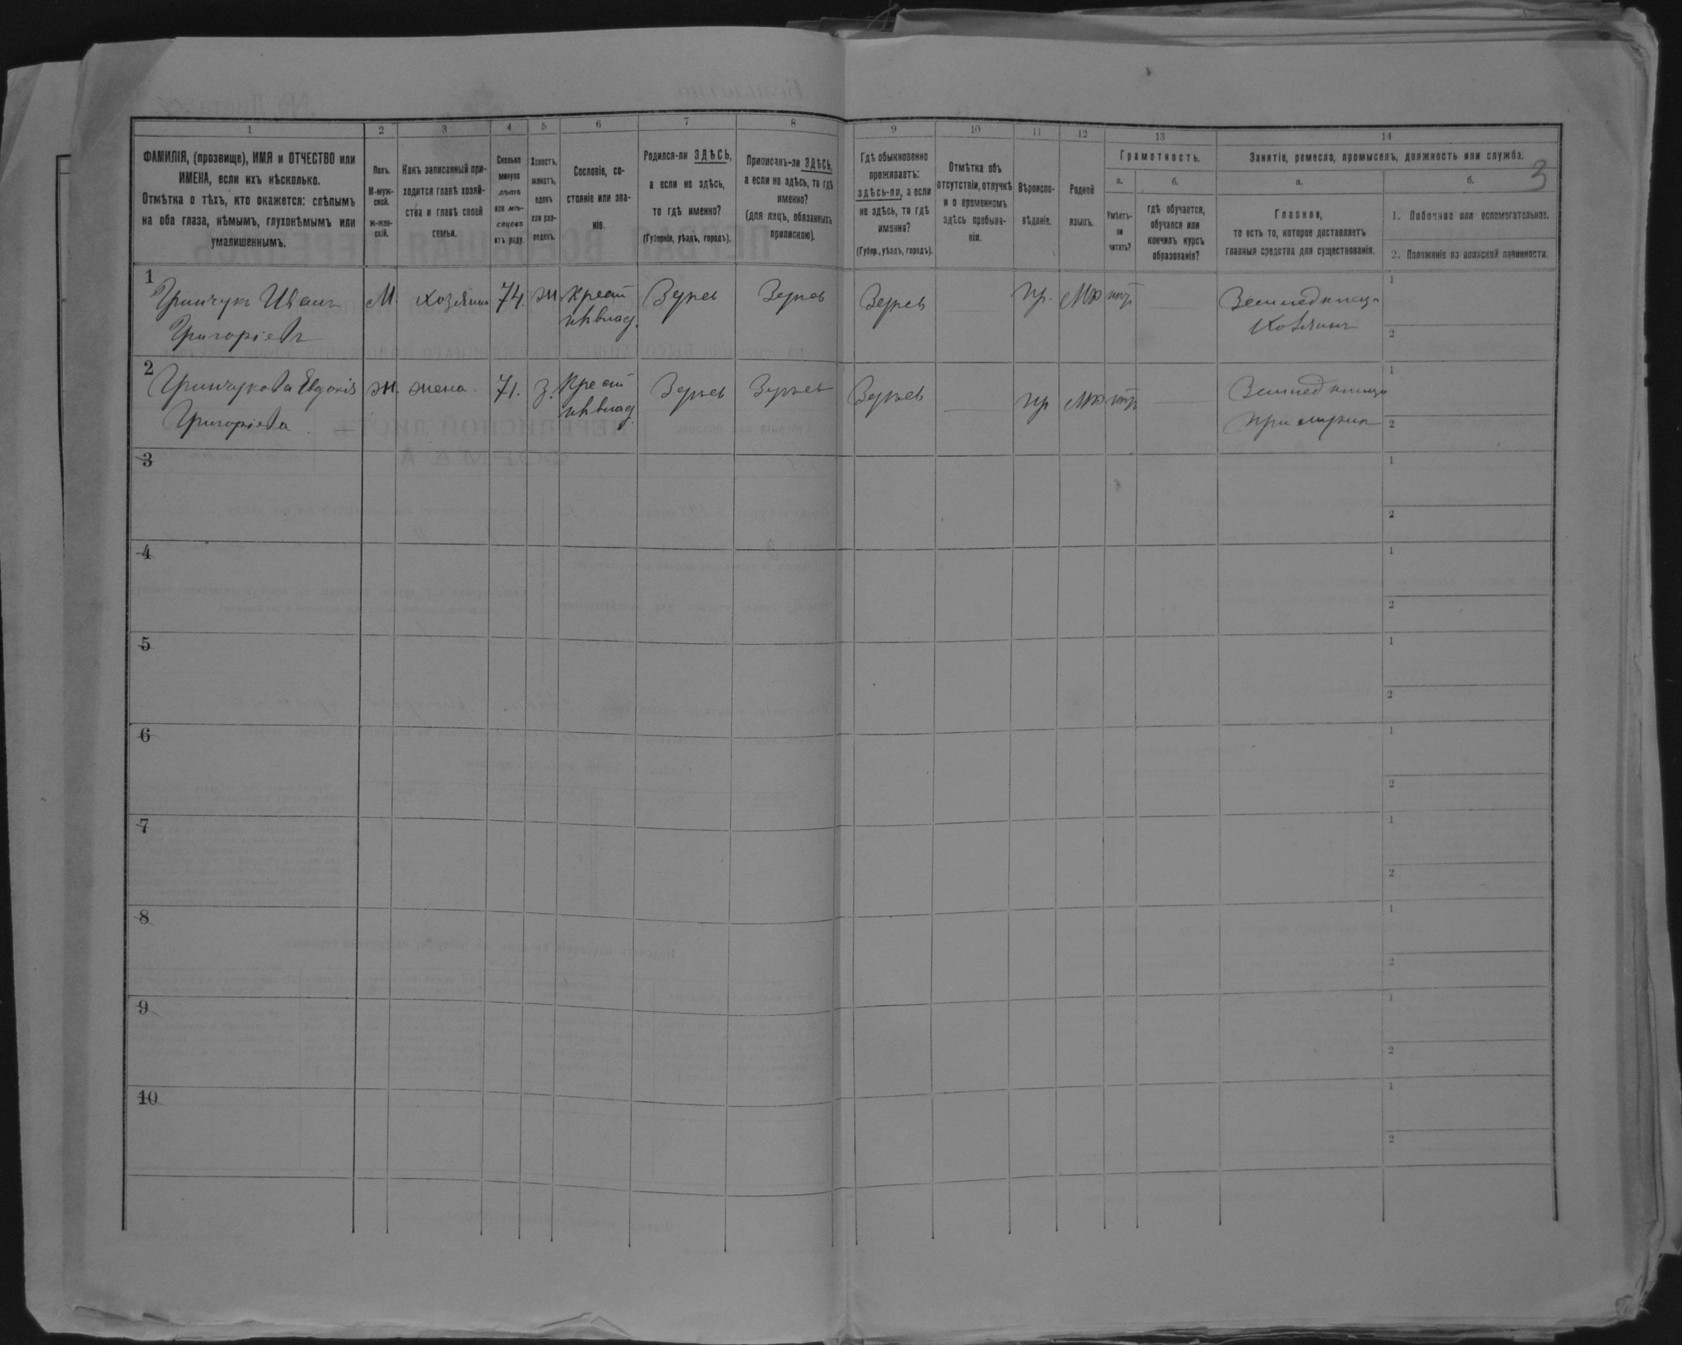 1 2 3 4 5 6 7 8 9 10 11 12 13 14
ФАМИЛІЯ, (прозвище), ИМЯ и ОТЧЕСТВО или
ИМЕНА, если ихъ нѣсколько.
Отмѣтка о тѣхъ, кто окажется: слѣпымъ
на оба глаза, нѣмымъ, глухонѣмымъ или
умалишеннымъ.
Полъ.
М-муж-
ской.
ж-жен-
скій.
Какъ записанный при-
ходится главѣ хозяй-
ства и главѣ своей
семьи.
Сколько
минуло
лѣтъ
или мѣ-
сяцевъ
отъ роду.
Холостъ,
женатъ,
вдовъ
или раз-
веденъ.
Сословіе, со-
стояніе или зва-
ніе.
Родился-ли ЗДѢСЬ,
а если не здѣсь,
то гдѣ именно?
(Губернія, уѣздъ, городъ).
Приписанъ-ли ЗДѢСЬ,
а если не здѣсь, то гдѣ
именно?
(для лицъ, обязанныхъ
припискою).
Гдѣ обыкновенно
проживаетъ:
здѣсь-ли, а если
не здѣсь, то гдѣ
именно?
(Губер., уѣздъ, городъ).
Отмѣтка объ
отсутствіи, отлучкѣ
и о временномъ
здѣсь пребыва-
ніи.
Вѣроиспо-
вѣданіе.
Родной
языкъ.
Грамотность.
а.
Умѣетъ-
ли
читать?
б.
гдѣ обучается,
обучался или
кончилъ курсъ
образованія?
Занятіе, ремесло, промыселъ, должность или служба.
3
а.
Главное,
то есть то, которое доставляетъ
главныя средства для существованія.
б.
1. Побочное или вспомогательное.
2. Положеніе по воинской повинности.
1
Гринчукъ Иванъ М хозяинъ 74. ж Крест Пр.
Григоріевъ Хозяинъ
1
2
2
Гринчукова Евдокія ж. жена 71. з. Крест пр
Григоріева
1
2
3
1
2
4
1
2
5
1
2
6
1
2
7
1
2
8
1
2
9
1
2
10
1
2